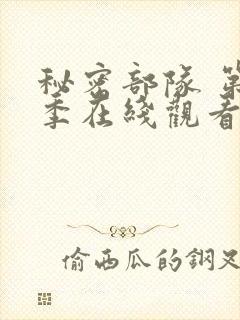 秘密部隊 第
季在綫觀看
偷西瓜的鋼叉